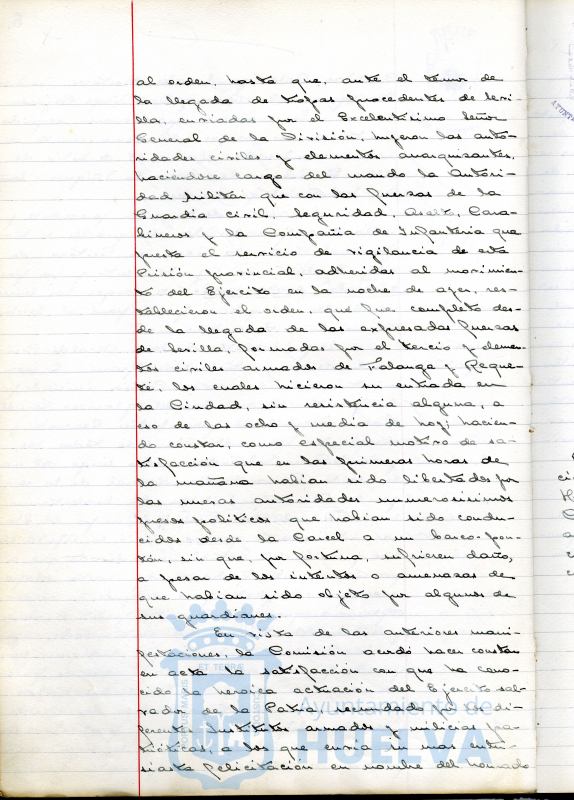 al orden, hasta que, ante el temor de
la llegada de tropas procedentes de Sevi-
lla, enviadas por el Excelentisimo Señor
General de la División, huyeron las auto-
ridades civiles y elementos anarquizantes,
haciéndose cargo del mando la Autori-
dad Militar que con las fuerzas de la
Guardia civil, Seguridad, Asalto, Cara-
bineros y la Compañia de Infanteria que
presta el servicio de vigilancia de esta
Prisión provincial, adheridas al movimien-
to del Ejercito en la noche de ayer, res-
tablecieron el orden, que fue completo des-
de la llegada de las expresadas fuerzas
de Sevilla, formadas por el tercio y elemen-
tos civiles armados de Falange y Reque-
té, los cuales hicieron su entrada en
la Ciudad, sin resistencia alguna, a
eso de las ocho y media de hoy; hacien-
do constar, como especial motivo de sa-
tisfacción que en las primeras horas de
la mañana habian sido libertados por
las nuevas autoridades numerosisimos
presos politicos que habian sido condu-
cidos desde la Carcel a un barco-pon-
tón, sin que, por fortuna, sufrieren daño,
a pesar de los intentos o amenazas de
que habian sido objeto por algunos de
sus guardianes.
En vista de las anteriores mani-
festaciones, la Comisión acordó hacer constar
en acta la satisfacción con que ha cono-
cido la heroica actuación del Ejercito sal-
vador de la Patria, secundado por los di-
ferentes Institutos armados y milicias pa-
trióticas, a los que envia su mas entu-
siasta felicitación en nombre del honrado
Ayuntamiento de
HUELVA